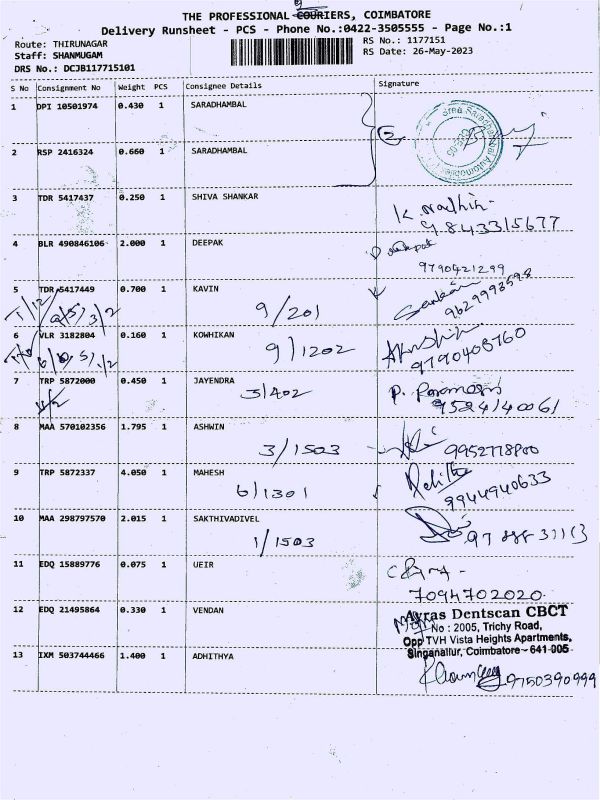 THE PROFESSIONAL COURIERS, COIMBATORE
Delivery Runsheet - PCS - Phone No.:0422-3505555 - Page No.:1
Route: THIRUNAGAR
Staff: SHANMUGAM
DRS No.: DCJB117715101
RS No.: 1177151
RS Date: 26-May-2023
S No Consignment No Weight PCS Consignee Details Signature
1 DPI 10501974 0.430 1 SARADHAMBAL
2 RSP 2416324 0.660 1 SARADHAMBAL
3 TDR 5417437 0.250 1 SHIVA SHANKAR
9843315677
4 BLR 490846106 2.000 1 DEEPAK
9790421299
5 TDR 5417449 0.700 1 KAVIN 9/201
9629993598
6 VLR 3182804 0.160 1 KOWHIKAN 9/1202
9790408760
7 TRP 5872000 0.450 1 JAYENDRA 3/402
9524140061
8 MAA 570102356 1.795 1 ASHWIN 3/1503
9 TRP 5872337 4.050 1 MAHESH 6/1301
9944940633
10 MAA 298797570 2.015 1 SAKTHIVADIVEL 1/1503
11 EDQ 15889776 0.075 1 UEIR
7094702020
12 EDQ 21495864 0.330 1 VENDAN
Dentscan CBCT
No : 2005, Trichy Road,
Opp TVH Vista Heights Apartments,
Singanallur, Coimbatore - 641 005
13 IXM 503744466 1.400 1 ADHITHYA
9750390999